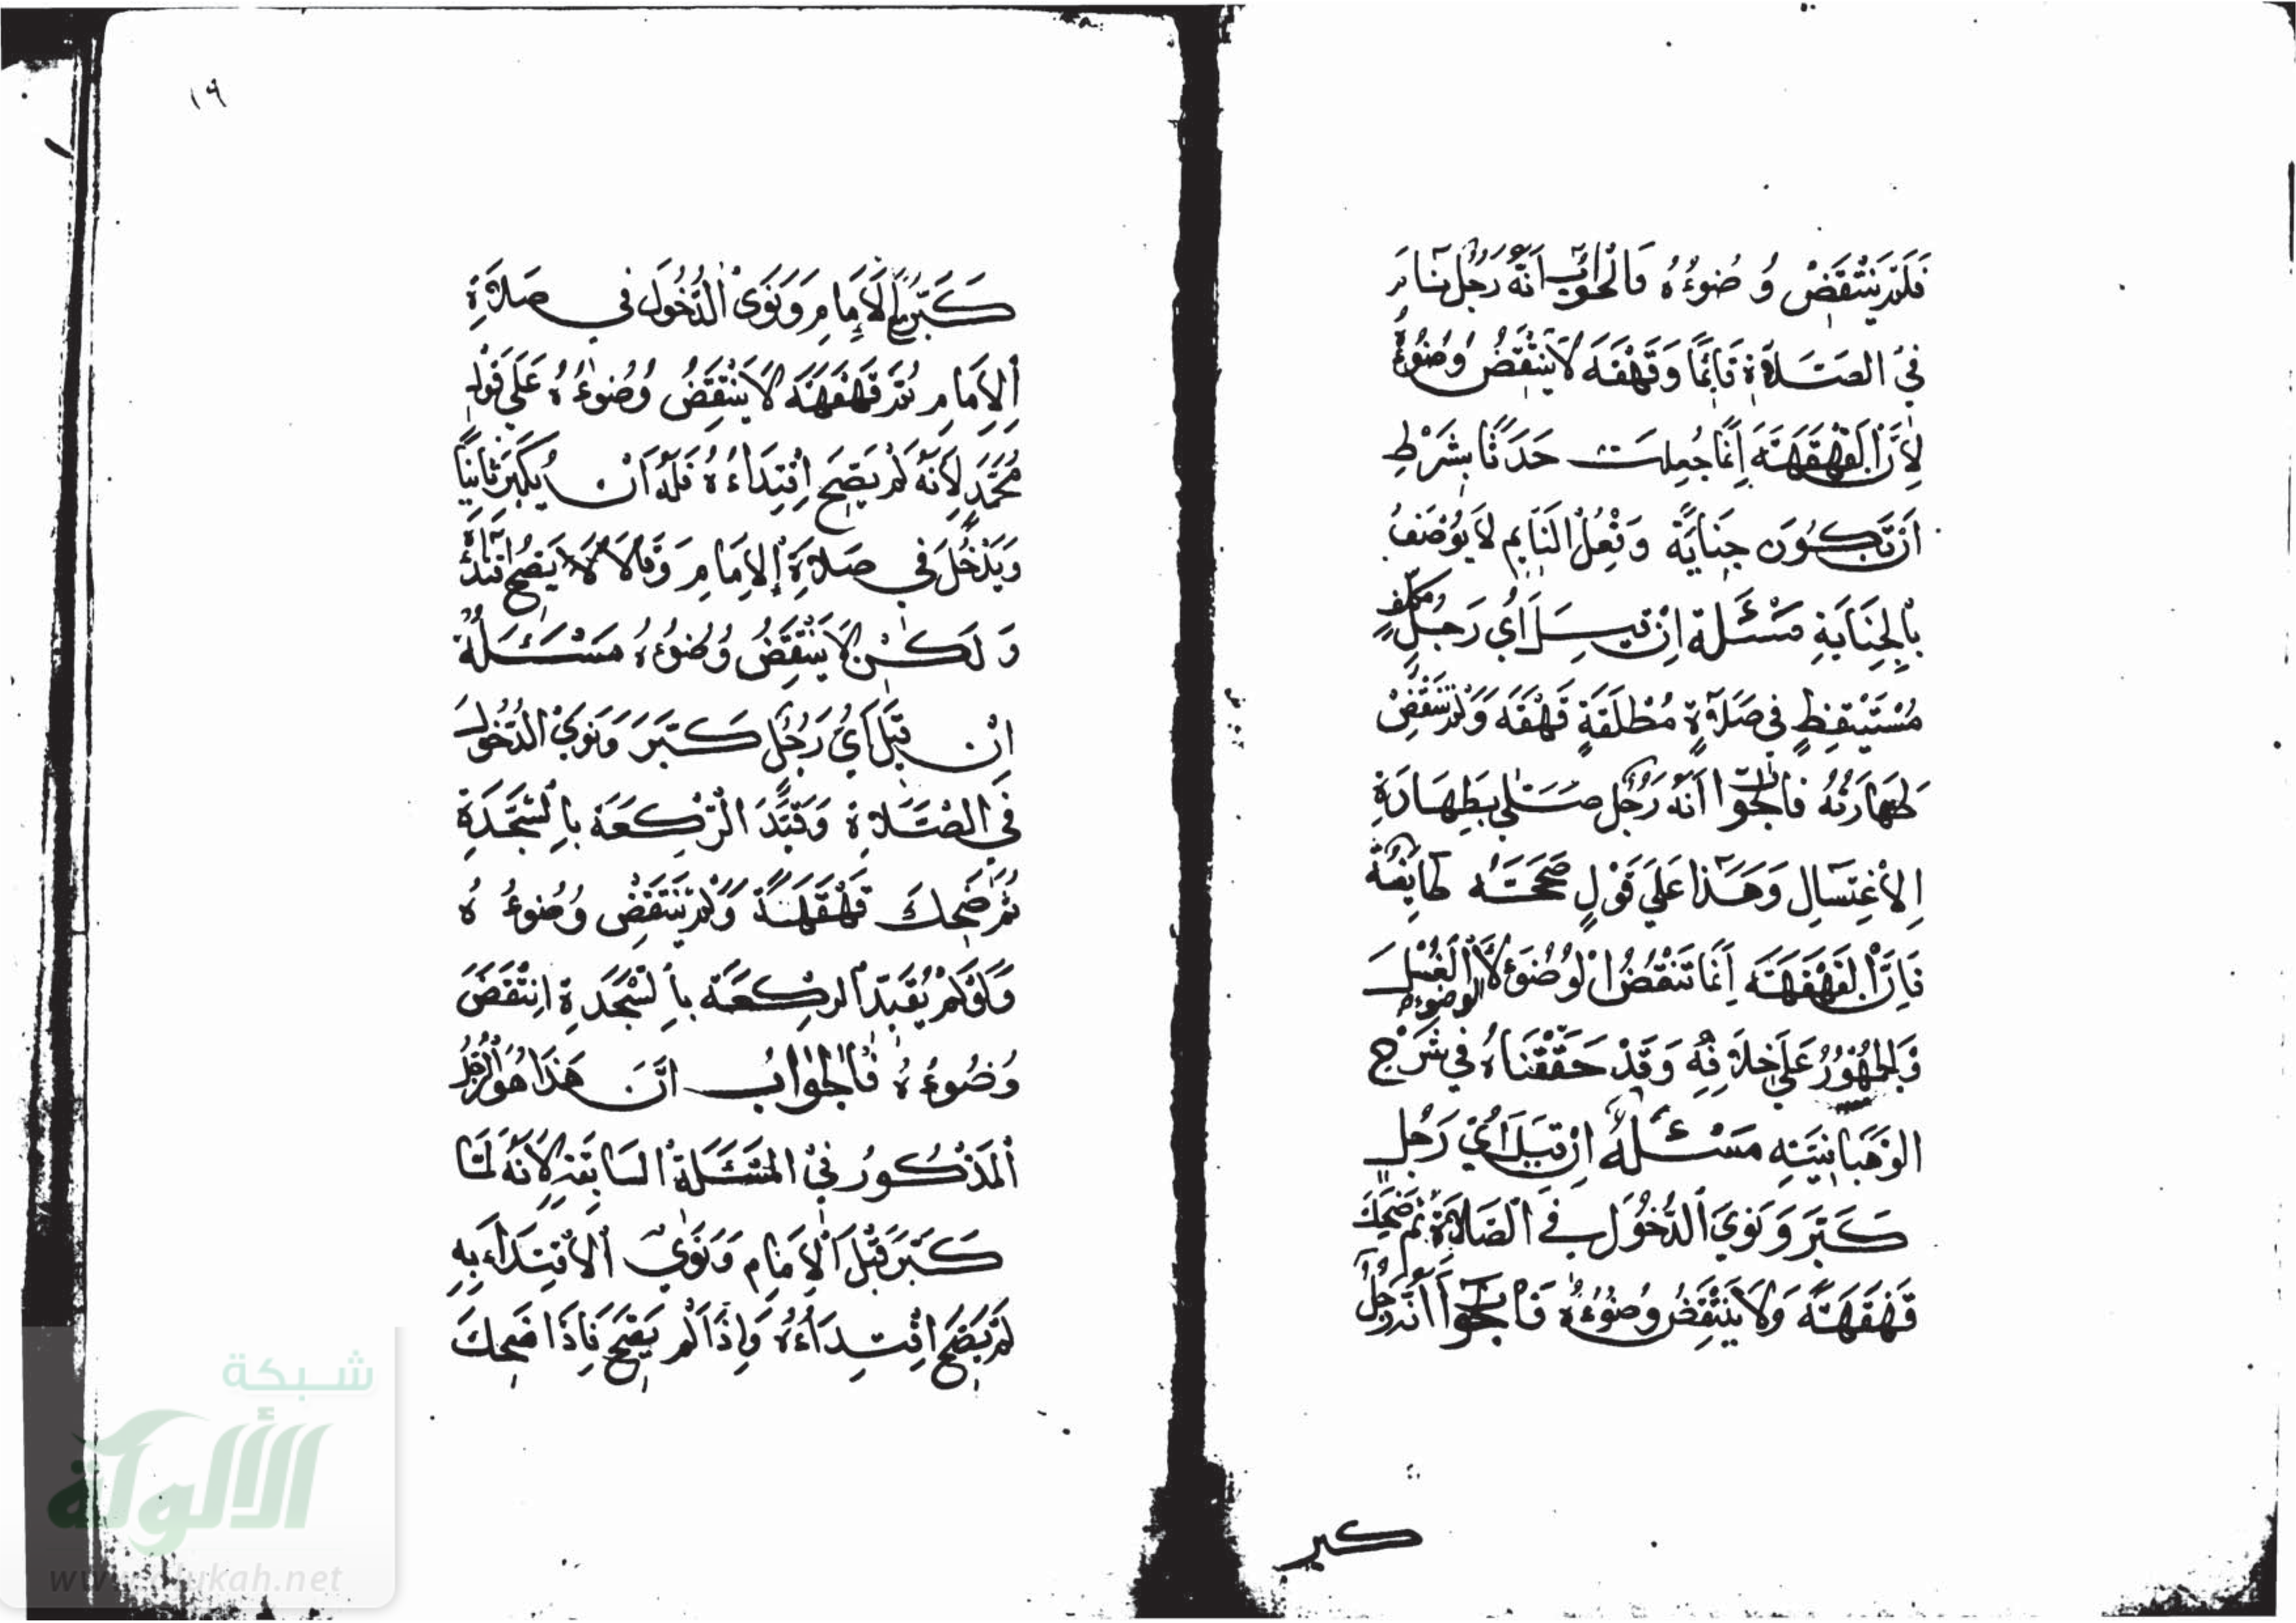 فَلَمْ يَنْتَقِضْ وُضُوءُهُ فَالْجَوَابُ أَنَّهُ رَجُلٌ نَامَ
فِي الصَّلَاةِ قَائِمًا وَقَهْقَهَ لَا يَنْتَقِضُ وُضُوءُهُ
لِأَنَّ الْقَهْقَهَةَ إِنَّمَا جُعِلَتْ حَدَثًا بِشَرْطِ
أَنْ تَكُونَ جِنَايَةً وَفِعْلُ النَّايِمِ لَا يُوصَفُ
بِالْجِنَايَةِ مَسْئَلَة إِنْ قِيلَ أَيُّ رَجُلٍ مُكَلَّفٍ
مُسْتَيْقِظٍ فِي صَلَاةٍ مُطْلَقَةٍ قَهْقَهَ وَلَمْ تَنْتَقِضْ
طَهَارَتُهُ فَالْجَوَابُ أَنَّهُ رَجُلٌ صَلَّى بِطَهَارَةِ
الْإِغْتِسَالِ وَهَذَا عَلَى قَوْلٍ صَحَّحَتْهُ طَايِفَةٌ
فَإِنَّ الْقَهْقَهَةَ إِنَّمَا تَنْقُضُ الْوُضُوءَ لَا الْغُسْلَ
الوضوء
وَالْجُمْهُورُ عَلَى خِلَافِهِ وَقَدْ حَقَّقْنَاهُ فِي شَرْحِ
الْوَهْبَانِيَّةِ مَسْئَلَةٌ إِنْ قِيلَ أَيُّ رَجُلٍ
كَبَّرَ وَنَوَى الدُّخُولَ فِي الصَّلَاةِ ثُمَّ ضَحِكَ
قَهْقَهَةً وَلَا يَنْتَقِضُ وُضُوءُهُ فَالْجَوَابُ أَنَّهُ رَجُلٌ
كبر
١٩
كَبَّرَ قَبْلَ الْإِمَامِ وَنَوَى الدُّخُولَ فِي صَلَاةِ
الْإِمَامِ ثُمَّ قَهْقَهَ لَا يَنْتَقِضُ وُضُوءُهُ عَلَى قَوْلِ
مُحَمَّدٍ لِأَنَّهُ لَمْ يَصِحَّ اقْتِدَاءُهُ فَلَهُ أَنْ يُكَبِّرَ ثَانِيًا
وَيَدْخُلَ فِي صَلَاةِ الْإِمَامِ وَقَالَا لَا يَصِحُّ اقْتِدَاءُهُ
وَلَكِنْ لَا يَنْتَقِضُ وُضُوءُهُ مَسْئَلَةٌ
إِنْ قِيلَ أَيُّ رَجُلٍ كَبَّرَ وَنَوَى الدُّخُولَ
فِي الصَّلَاةِ وَقَيَّدَ الرَّكْعَةَ بِالسَّجْدَةِ
ثُمَّ ضَحِكَ قَهْقَهَةً وَلَمْ يَنْتَقِضْ وُضُوءُهُ
وَلَوْ لَمْ يُقَيِّدِ الرَّكْعَةَ بِالسَّجْدَةِ انْتَقَضَ
وُضُوءُهُ فَالْجَوَابُ أَنَّ هَذَا هُوَ الرَّجُلُ
الْمَذْكُورُ فِي الْمَسْئَلَةِ السَّابِقَةِ لِأَنَّهُ لَمَّا
كَبَّرَ قَبْلَ الْإِمَامِ وَنَوَى الْاقْتِدَاءَ بِهِ
لَمْ يَصِحَّ اقْتِدَاءُهُ وَإِذَا لَمْ يَصِحَّ فَإِذَا ضَحِكَ
شبكة
الألوكة
www.alukah.net